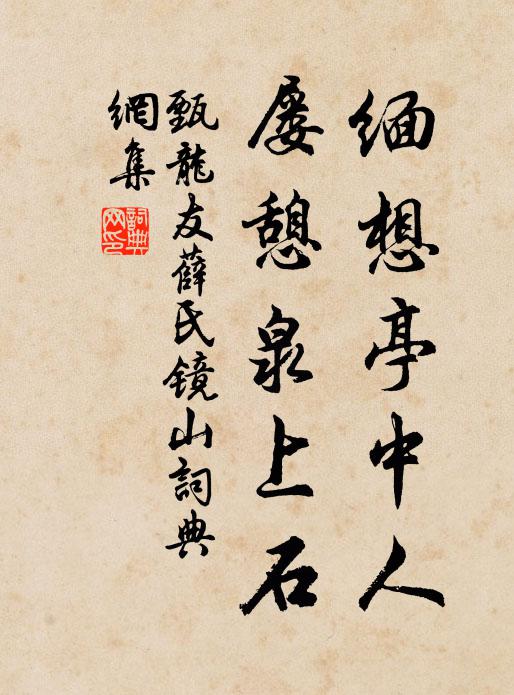 緬想亭中人
屡憩泉上石
甄龍友薛氏镜山詞典
網集
詞典
网印